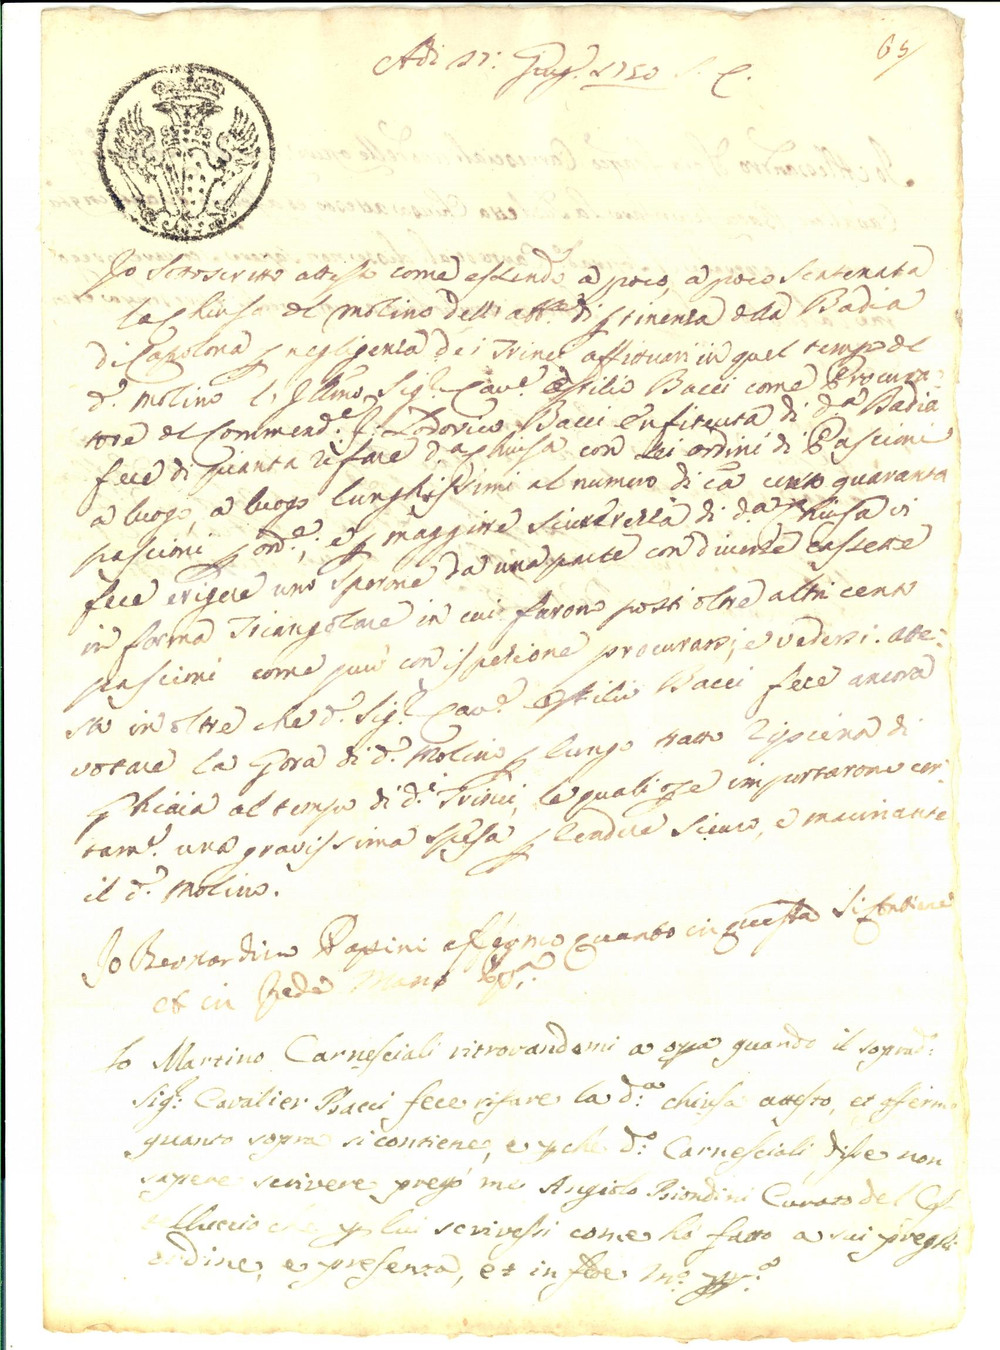 65
Adi 17: Giug.o 1750 S. C.
Io Sottoscritto attesto come essendo à poco, à poco scatenata
la chiusa del Molino dell' att.e di pertinenza della Badia
di Capolona p negligenza dei Trinci affittuari in quel tempo del
d.o Molino l' Ill.mo Sig.r Cav.e Attilio Bacci come Procura-
tore del Commend.e F. Lodovico Bacci Enfiteuta di d.a Badia
fece di Pianta rifare d.a chiusa con sei ordini di Pascioni
à luogo, à luogo lunghissimi al numero di c.a cento quaranta
pascioni p ord.e, e p maggiore sicurezza di d.a Chiusa vi
fece erigere uno sperone da una parte con diverse cassette
in forma Triangolare in cui furono posti oltre altri cento
pascioni come può con ispezione procurarsi, e vedersi. atte-
sto in oltre che d.o Sig.r Cav.e Attilio Bacci fece ancora
votare la Gora di d.o Molino p lungo tratto ripiena di
Ghiaia al tempo di d.i Trinci, le quali opre importarono cer-
tam.e una gravissima spesa p rendere sicuro, e macinante
il d.o Molino.
Io Bernardino Papini affermo quanto in questa si contiene
et in fede mano pp.a
Io Martino Carnesciali ritrovandomi a opra quando il soprad.o
Sig.r Cavalier Bacci fece rifare la d.a chiusa attesto, et affermo
quanto sopra si contiene, e p che d.o Carnesciali disse non
sapere scrivere pregò me Angiolo Biondini Curato del
che p lui scrivessi come hò fatto a sui preghi
ordine, e presenza, et in fede m.o pp.a